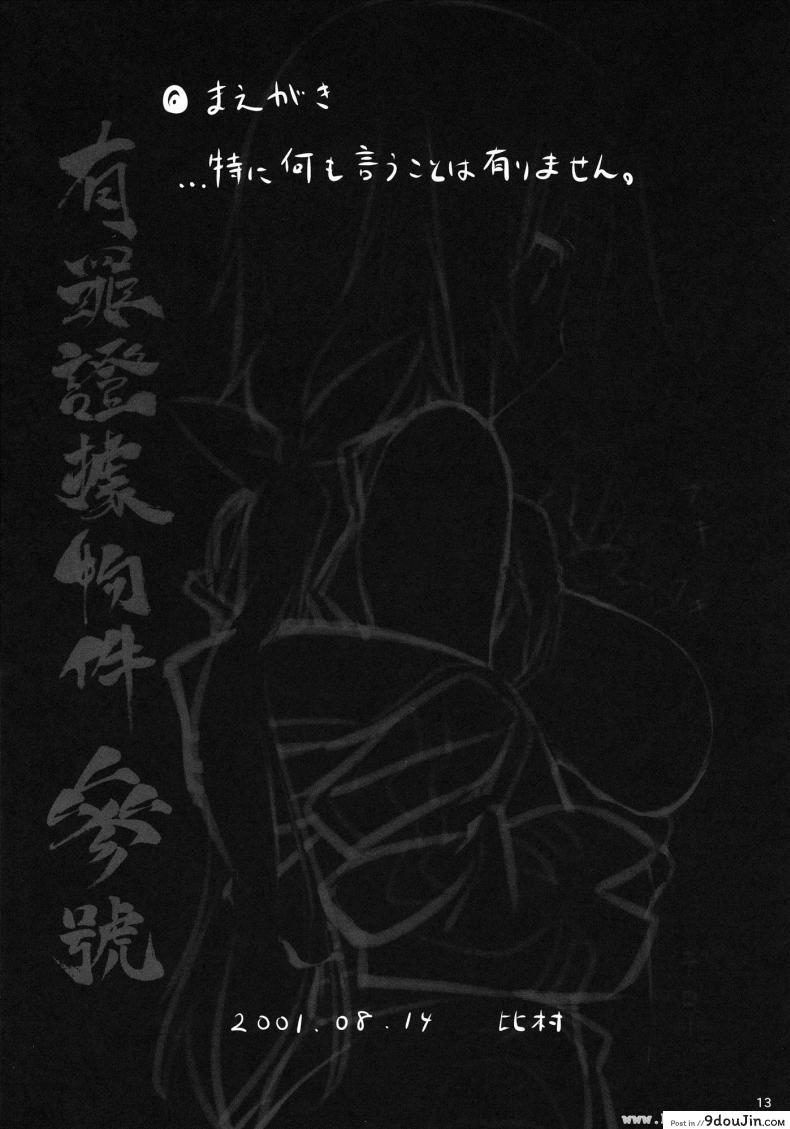 まえがき
…特に何も言うことは有りません。
有罪證據物件 參號
2001.08.14 比村
13
Post in // 9douJin.com